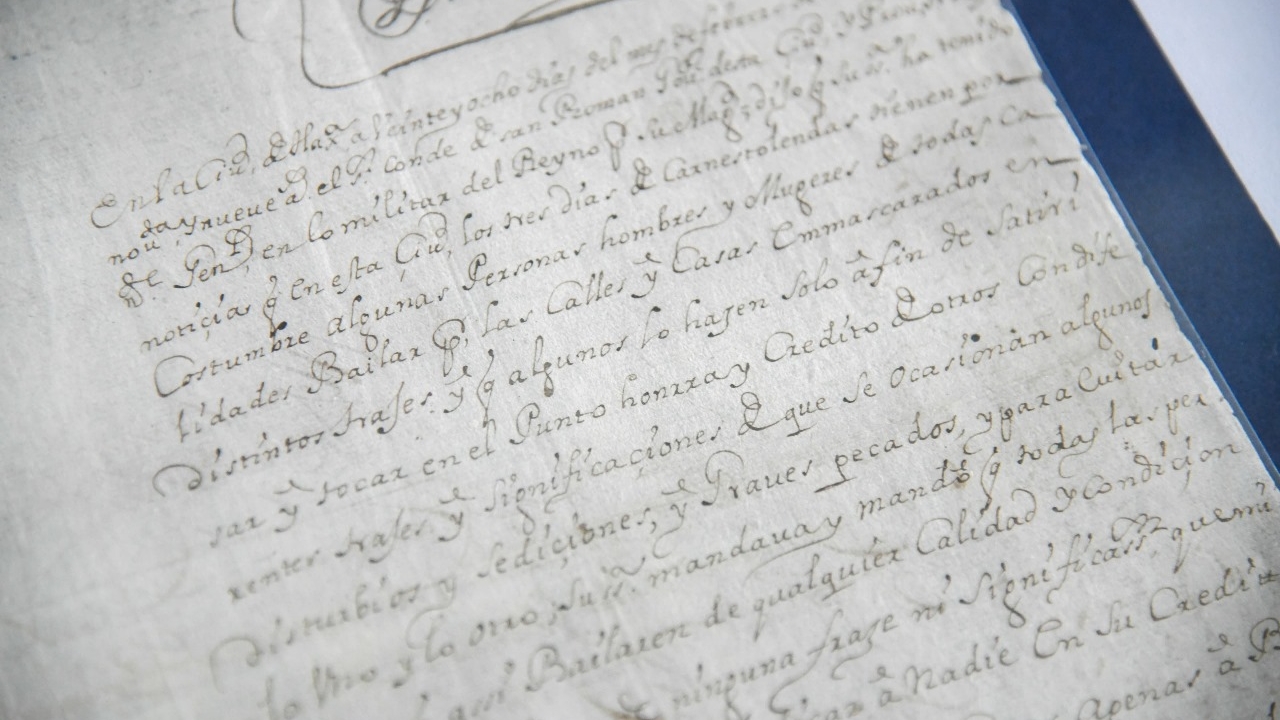 En la Ciud, de Hax a Veinte y ocho dias del mes de febrero
nouda y nueue a. el Sr conde de san Roman desta Ciud, y
Genl, en lo militar del Reyno P su Magd, dijo q su sa. ha tenido
noticias q en esta Ciud, los tres dias de Carnestolendas vienen por
Costumbre algunas Personas hombres y Mugeres de todas Ca
lidades Bailar P, las Calles y Casas Emmascarados en
distintos trajes y q algunos lo hazen solo a fin de Satiri
sar y tocar en el Punto honrra y Credito de otros Con dife
rentes trajes y significaciones de que se ocasionan algunos
disturbios y sediciones, y Graues pecados, y para Cuitar
lo Vno y lo otro, su sa. mandaua y mando q todas las per
assi Bailaren de qualquier Calidad y Condicion
ninguna fraze ni significass que
a Nadie En su Credit
apenas a